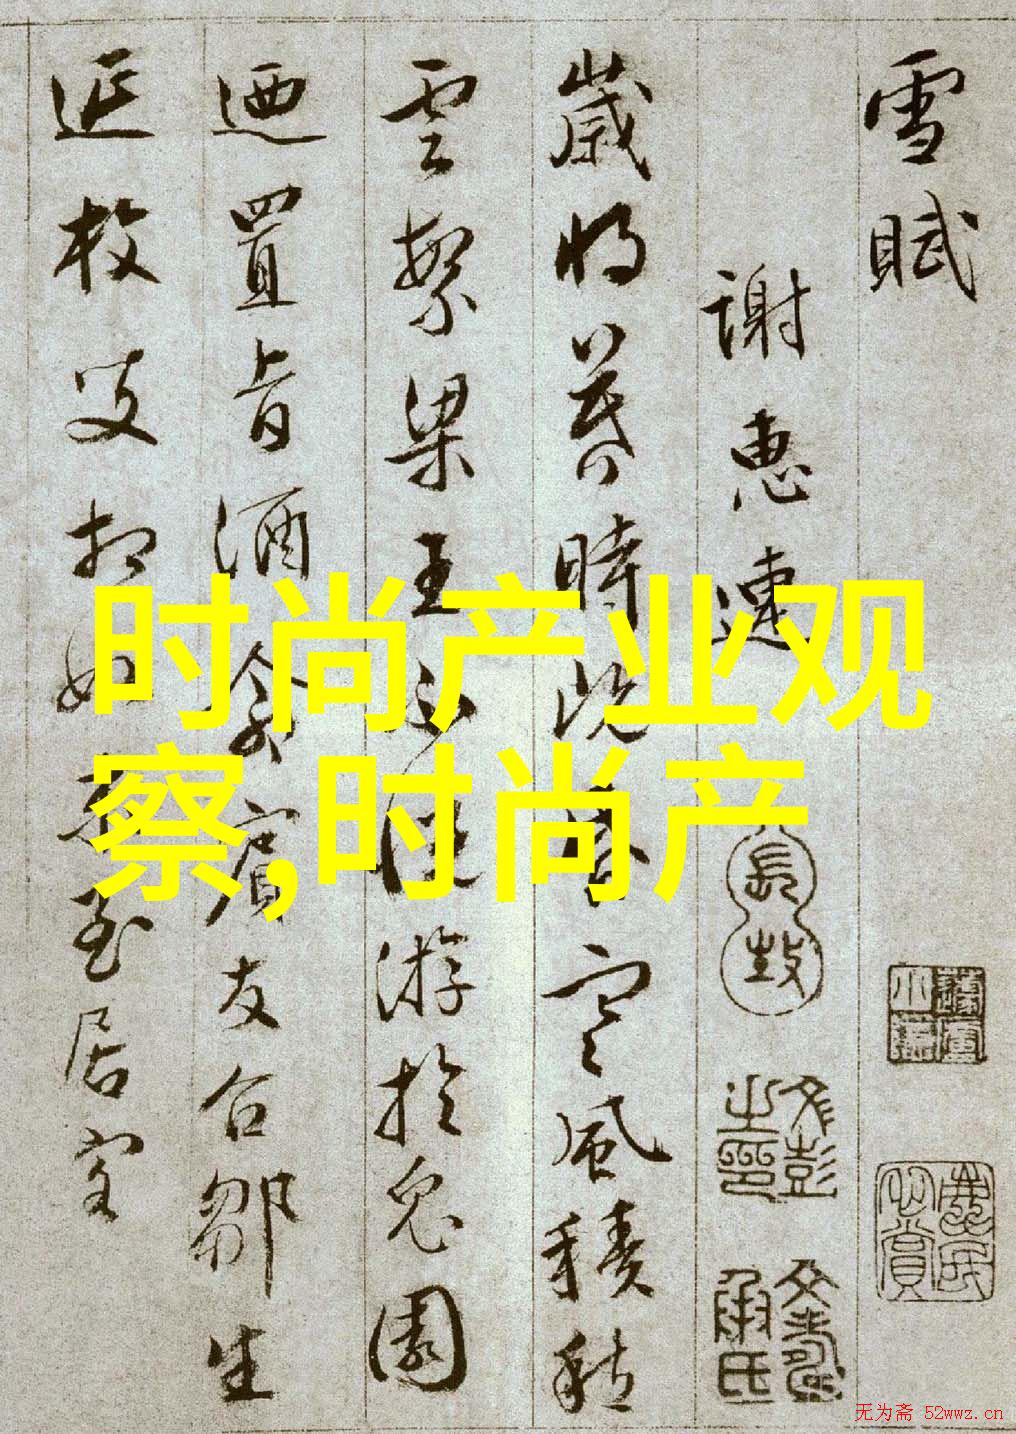 雪賦
謝惠連
歲將暮時既昏寒風積愁
雲繁梁王不悅游於兔園
迺置旨酒命賓友召鄒生
延枚叟相如末至居客
时尚产业观
察,时尚产
文彭之印
文壽承氏
无为斋 52wwz.cn